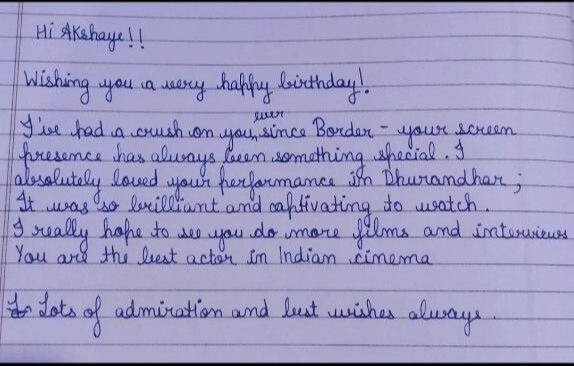 Hi Akshaye!!
Wishing you a very happy birthday!
I've had a crush on you, ever since Border - your screen
presence has always been something special. I
absolutely loved your performance in Dhurandhar;
It was so brilliant and captivating to watch.
I really hope to see you do more films and interviews
You are the best actor in Indian cinema
Lots of admiration and best wishes always.